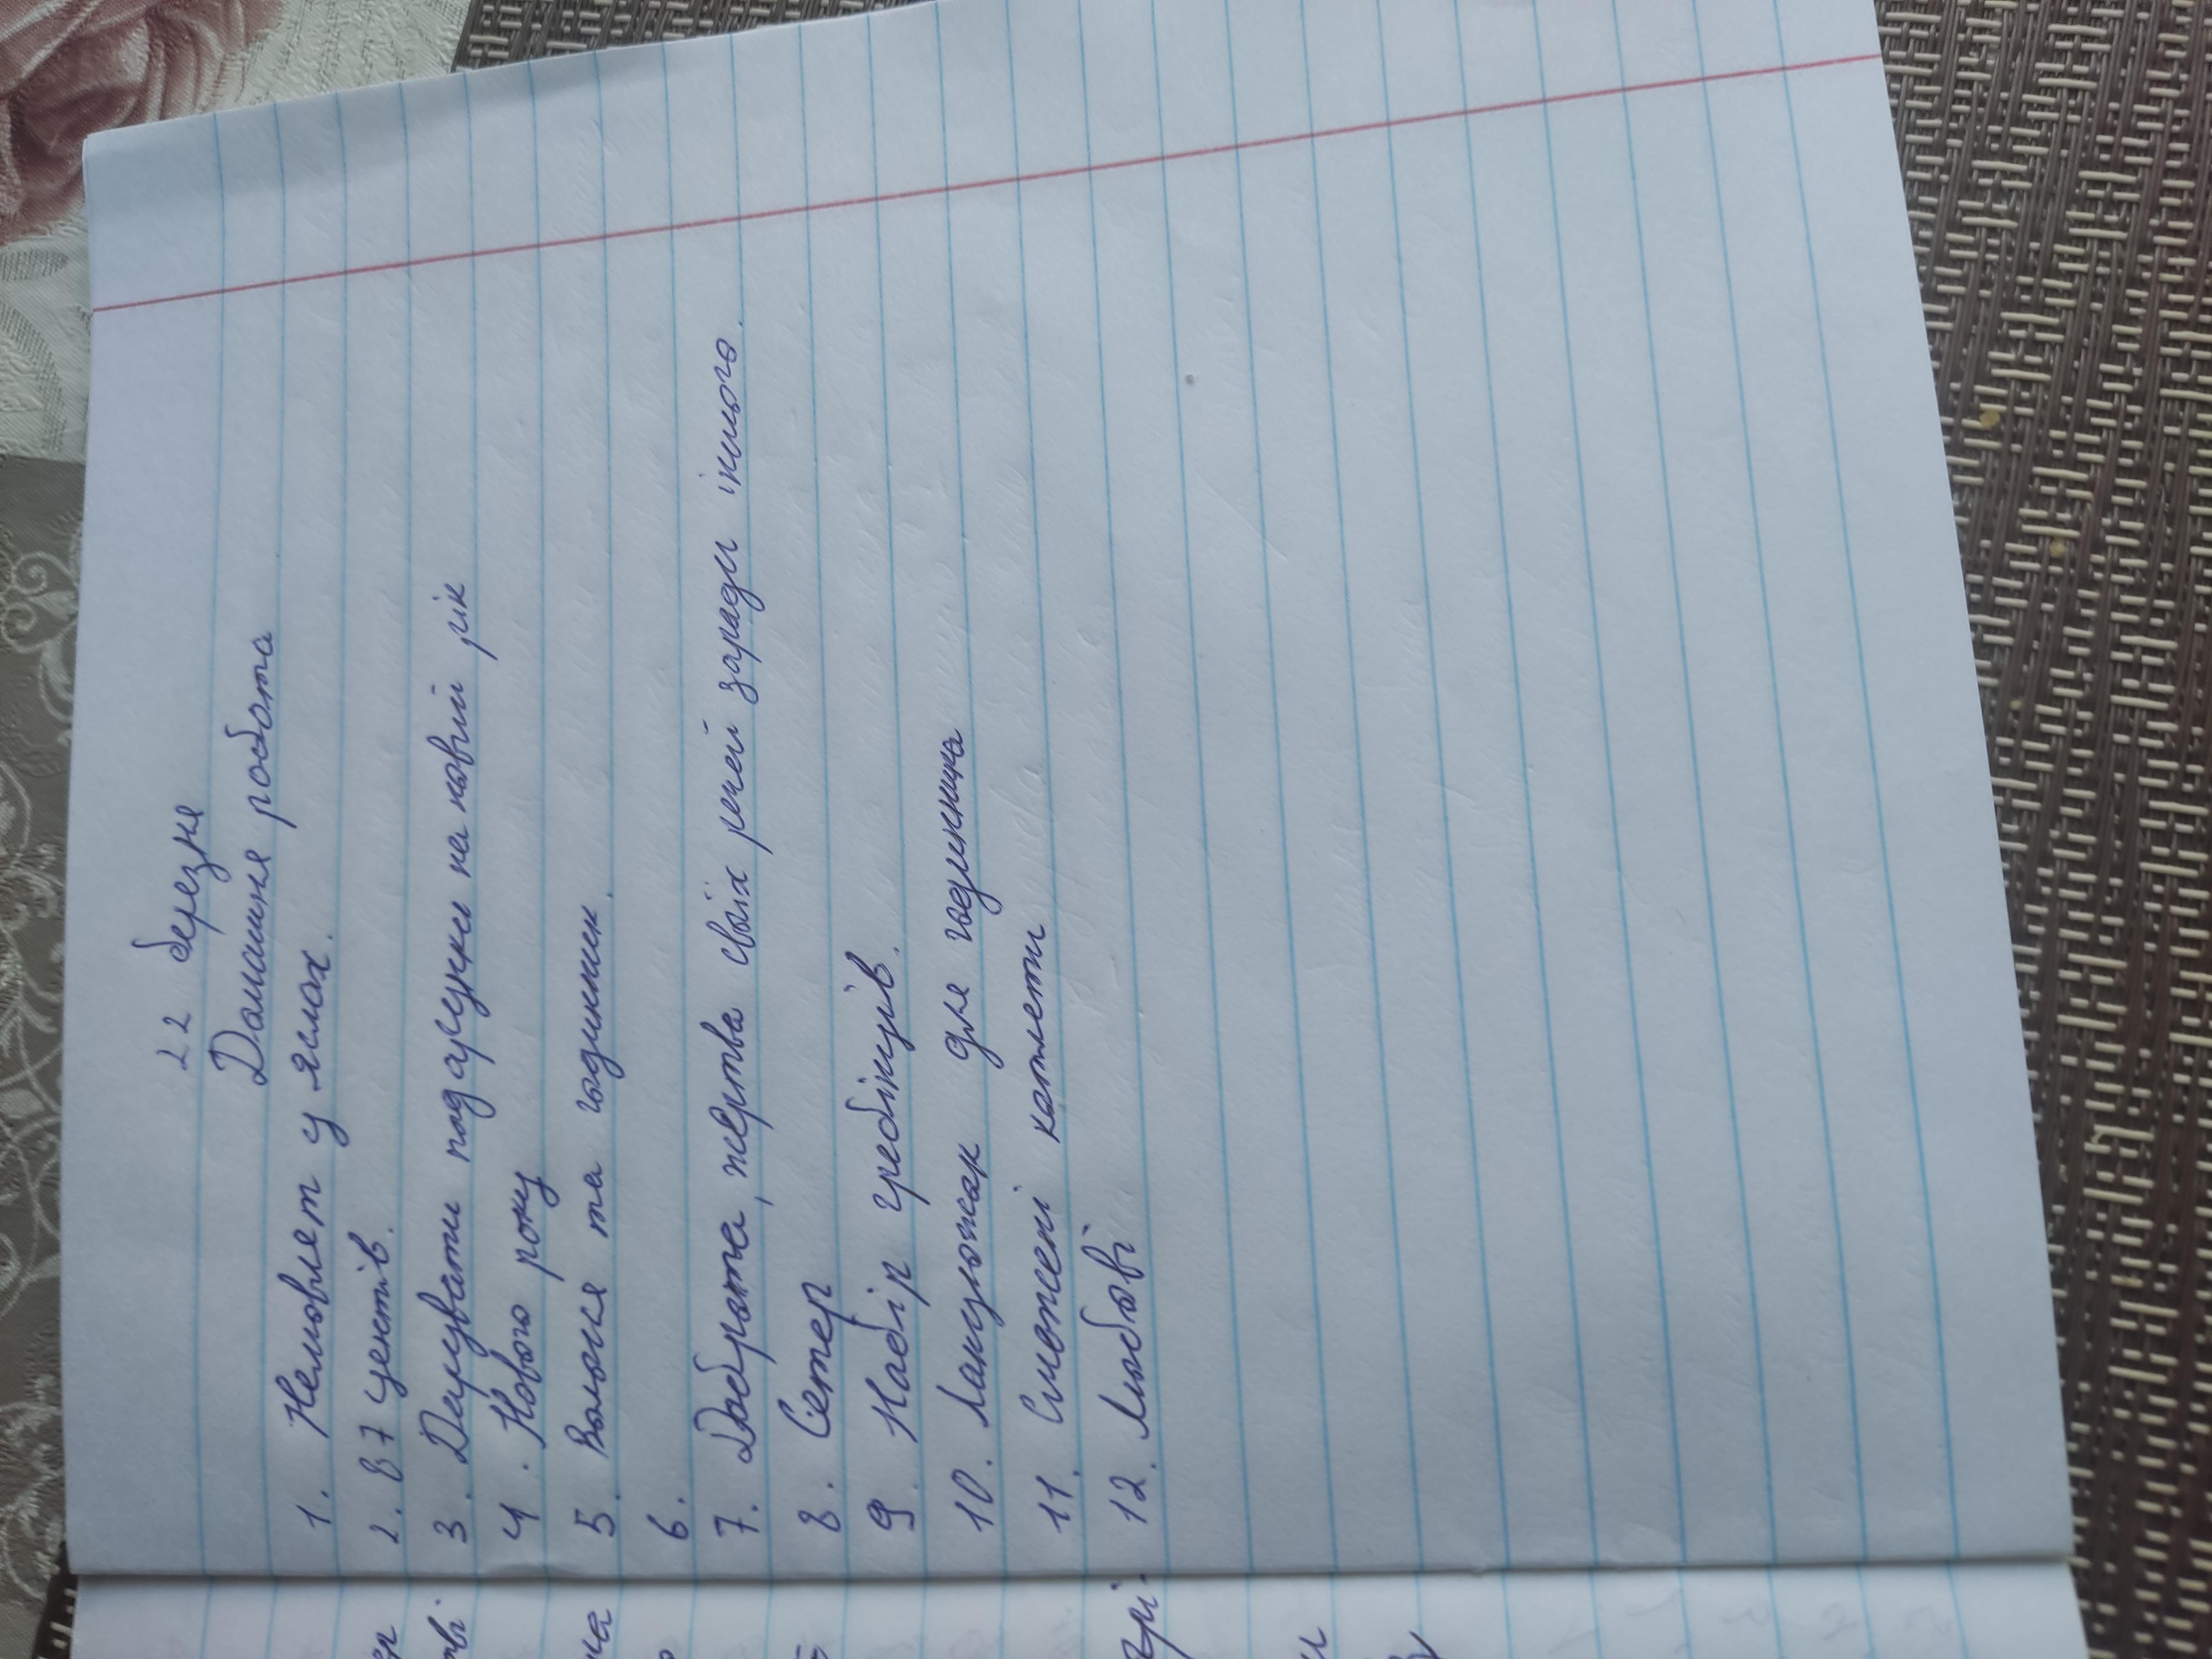 22 березня
Домашня робота
1. Немовлят у яслах.
2. 87 центів.
3. Дарувати подарунки на новий рік
4. Нового року
5. Волося та годинник.
6.
7. Доброта, жертва своїх речей заради іншого.
8. Сетер
9. Набір гребінців.
10. Ланцюжок для годинника
11. Смажені котлети
12. Любові